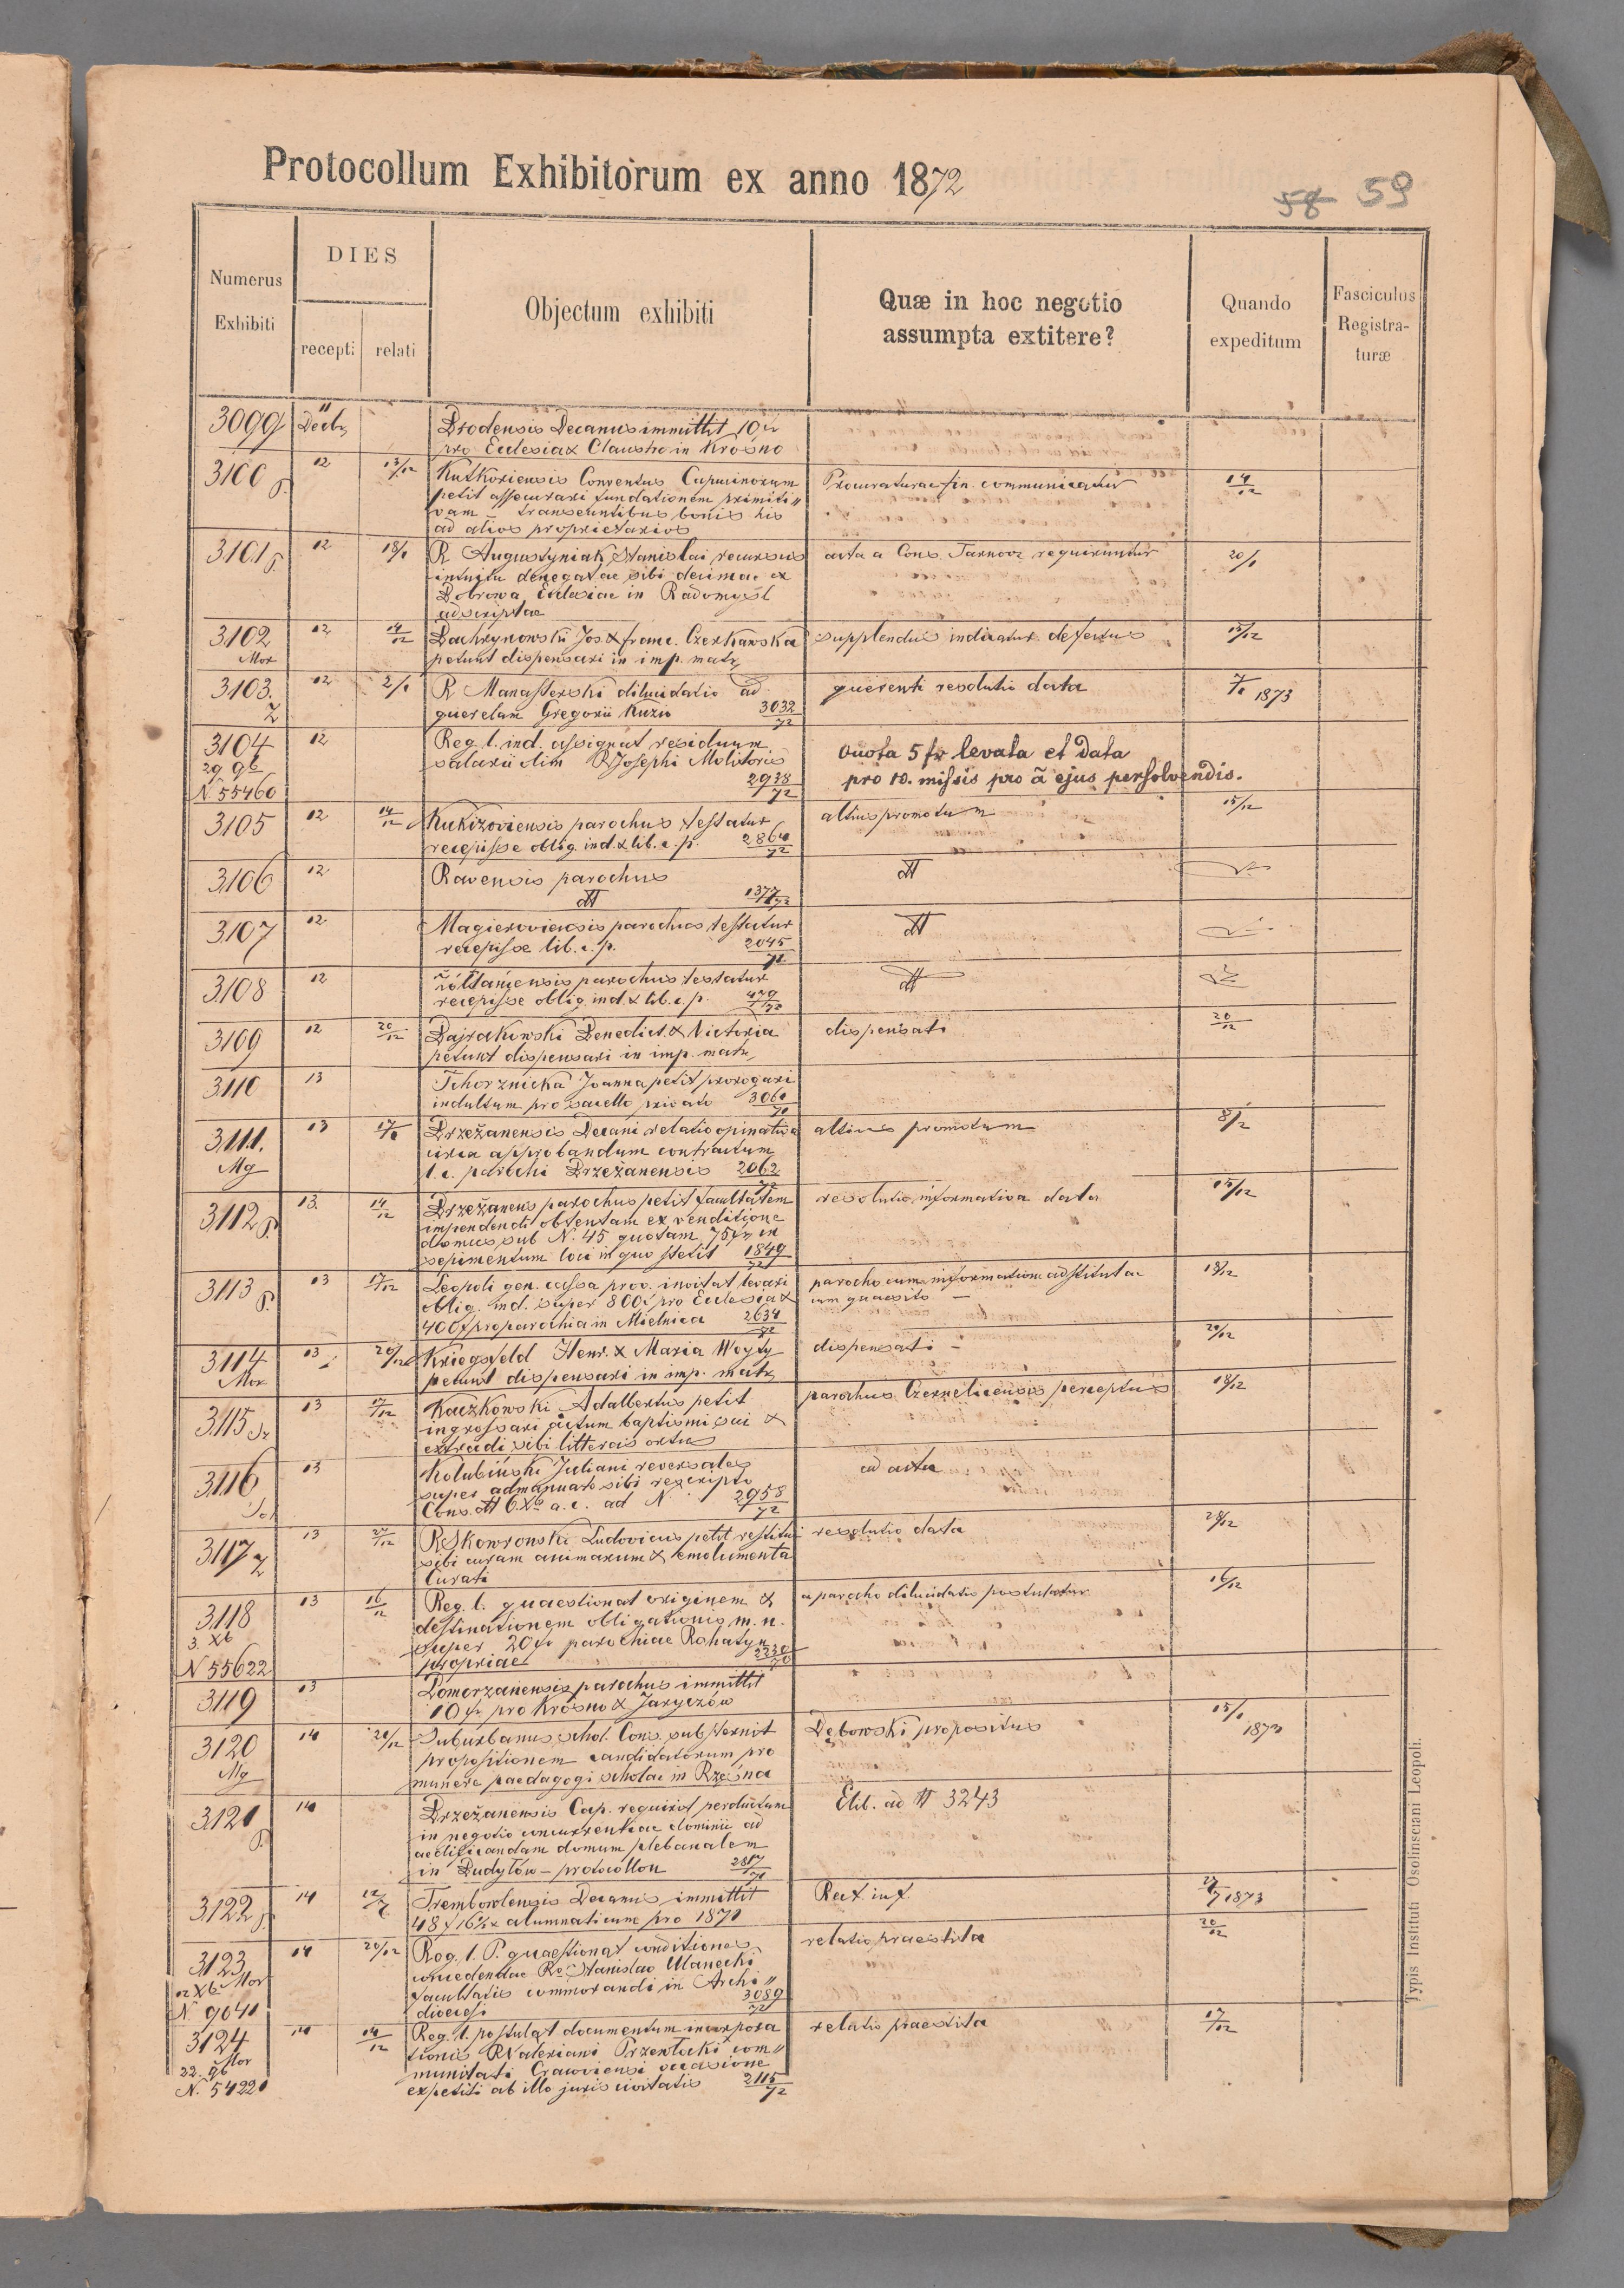 Protocollum Exhibitorum ex anno 1872
58 59
Numerus Exhibiti
DIES
recepti relati
Objectum exhibiti
Quæ in hoc negotio assumpta extitere?
Quando expeditum
Fasciculus Registra-turæ
3099 11 Decbr Brodensis Decanus immittit 10 fr
pro Ecclesia & Claustro in Krosno
3100 12 13/12 Kutkoriensis Conventus Capucinorum Procuraturae fin. communicatur 14/12
petit assecurari fundationem primiti〃
vam – transeuntibus bonis his
ad alios proprietarios
3101 12 18/1 R Augustyniak Stanislai recursus acta a Cons. Tarnov requiruntur 20/1
intuitu denegatae sibi decimae ex
Dobrowa Ecclesiae in Radomyśl
adscriptae
3102 12 14/12 Jos & franc. Czerkawska supplendus indicatur defectus 15/12
Mor petunt dispensari in imp. matr
3103. 12 2/1 R Manasterski dilucidatio ad querenti resolutio data 1873
Z querelam Gregorii Kuzio 3032/72
3104 12 Reg. l. ind. assignat residuum Quota 5 fr levata et data
29 9b salarii olim R Josephi Molitoris pro 10. missis pro ã ejus persolvendis.
N 55460 2938/72
3105 12 14/12 Kukizoviensis parochus testatur altius promotum 15/12
recepisse oblig. ind. & lib. c. p. 2864/72
3106 12 Ravensis parochus dtt
dtt 1377/72
3107 12 Magieroviensis parochus testatur dtt
recepisse lib. c. p. 2045/72
3108 12 Żółtańcensis parochus testatur dtt
recepisse oblig. ind & lib. c. p. 479/72
3109 12 20/12 Bajrakowski Benedict. & Victoria dispensati 20/12
petunt dispensari in imp. matr
3110 13 Tchorznicka Joanna petit prorogari
indultum pro sacello privato
3111. 13 Brzeżanensis Decani relatio opinativa altius promotum
Mg circa approbandum contractum
l. c. parochi Brzeżanensis 2062/72
3112 13. 14/12 Brzeżanens parochus petit facultatem resolutio informativa data 15/12
impendendi obtentam ex venditione
domus sub N. 45 quotam 75 fr in
sepimentum loci in quo stetit 1849/72
3113 13 17/12 Leopoli gen. cassa prov. invitat levari parocho cum informatione adstituta 18/12
oblig. ind. super 800 f pro Ecclesia & cum quaesito –
400 f pro parochia in Mielnica 2634/72
3114 13 20/12 Kriegsfeld Henr. & Maria Woyty dispensati – 20/12
Mor petunt dispensari in imp. matr
3115 13 17/12 Kaczkowski Adalbertus petit parochus Czernelicensis perceptus 18/12
ingrossari actum baptismi sui &
extradi sibi litteras ortus
3116 13 Kolubiński Juliani reversales ad acta
super admanuato sibi rescripto
Cons. dtt 6 Xb a. c. ad N 2958/72
3117 13 27/12 R Skowronski Ludovicus petit restitui resolutio data 28/12
Z sibi curam animarum & emolumenta
Curati
3118 13 16/12 Reg. l. quaestionat originem & a parocho dilucidatio postulatur 16/12
3. Xb destinationem obligationis m. n.
super 20 fr parochiae Rohatyn
N 55622 propriae
3119 13 Pomorzanensis parochus immittit
10 fr pro Krosno & Jaryczów
3120 14 20/12 Suburbanus schol. Cons. substernit Dębowski propositus 15/1 1873
Mg propositionem candidatorum pro
munere paedagogi scholae in Rzęsna
3121 14 Brzeżanensis Cap. requirit perductum Elib. ad N 3243
in negotio concurrentiae dominii ad
aedificandam domum plebanalem
in Budyłów – protocollon
3122 14 Trembowlensis Decanus immittit 1873
alumnaticum pro 1871
3123 14 20/12 Reg. l. P. quaestionat conditiones relatio praestita 20/12
12 Xb Mor concedendae Ro Stanislao Ulanecki
N. 9041 facultatis commorandi in Archi〃
dioecesi 3089/72
3124 14 14/12 Reg. l. postulat documentum incorpora relatio praestita 17/12
Mor tionis R Valeriani Przewłocki com〃
22. 9b munitati Cracoviensi occasione
N. 54221 expetiti ab illo juris civitatis 2115/72
Typis Instituti Ossolinsciani Leopoli.